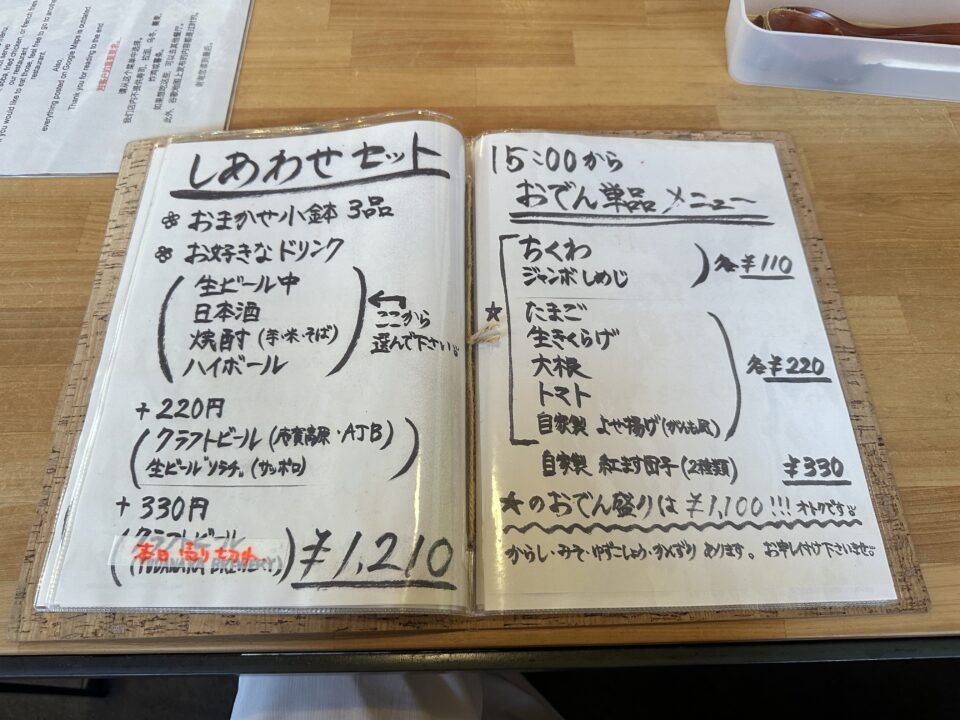 would like to eat those, feel free to go to another
restaurant.
Also,
everything posted on Google Maps is outdated
Thank you for reading to the end.
しあわせセット
おまかせ小鉢 3品
お好きなドリンク
生ビール中
日本酒
焼酎 (芋・米・そば)
ハイボール
ここから
選んで下さい
+220円
クラフトビール (志賀高原・AJB)
生ビール ソラチ。(サッポロ)
+330円
クラフトビール
本日 売り切れ
¥1,210
15:00から
おでん単品メニュー
ちくわ
ジャンボしめじ
各¥110
★
たまご
生きくらげ
大根
トマト
自家製 よせ揚げ (がんも風)
各¥220
自家製 紅玉団子 (2種類)
¥330
★のおでん盛りは ¥1,100!!! オトクです
からし・みそ・ゆずこしょう・かんずり あります。お申し付け下さいませ